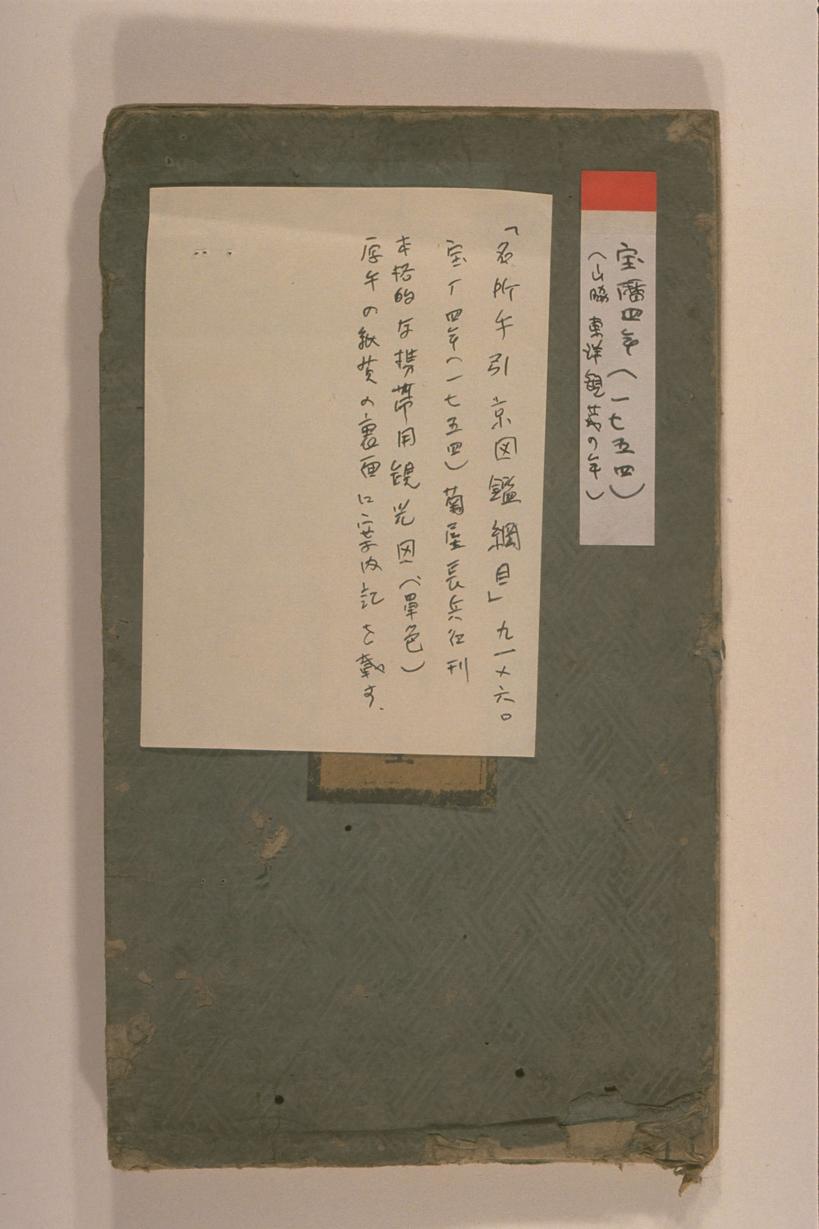 宝暦四年(一七五四)
(山脇東洋観蔵の年)
「名所手引京図鑑綱目」九一×六〇
宝丁四年(一七五四)菊屋長兵衛刊
本格的な携帯用観光図(単色)
厚手の紙質の裏面に案内記を載す.